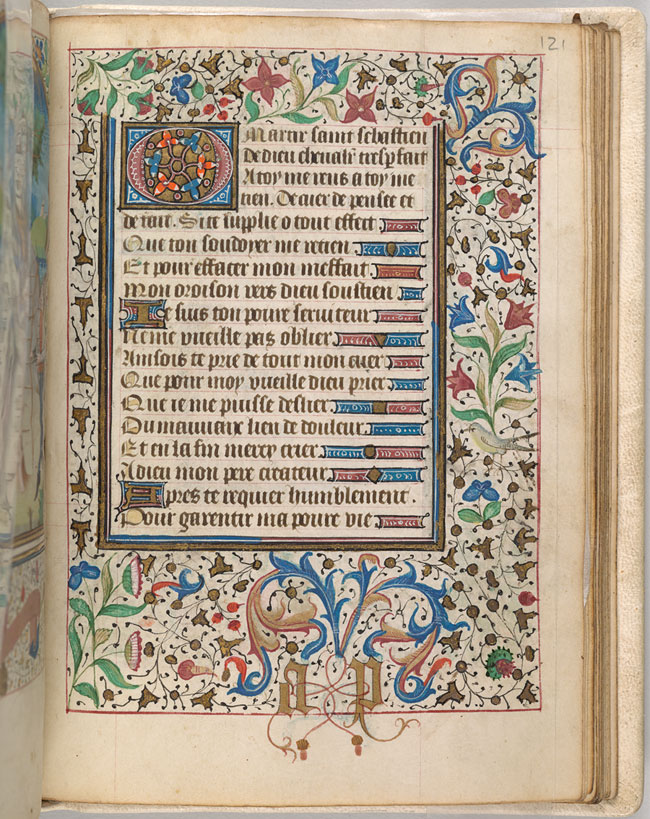 121
O Martir saint sebastien
De dieu chevalr tresp fait
A toy me rens a toy me
tien. De cuer de pensee et
de fait. Si te supplie o tout effect
Que ton soudoyer me retien
Et pour effacer mon meffait
Mon oroison vers dieu soustien
Je suis ton poure seruiteur
Ne me vueille pas oblier
Ainsois te prie de tout mon cuer
Que pour moy vueille dieu prier
Que ie me puisse deslier
Du mauuaix lien de douleur
Et en la fin mercy crier
A dieu mon pere createur
Apres te requier humblement.
Pour garentir ma poure vie
a p